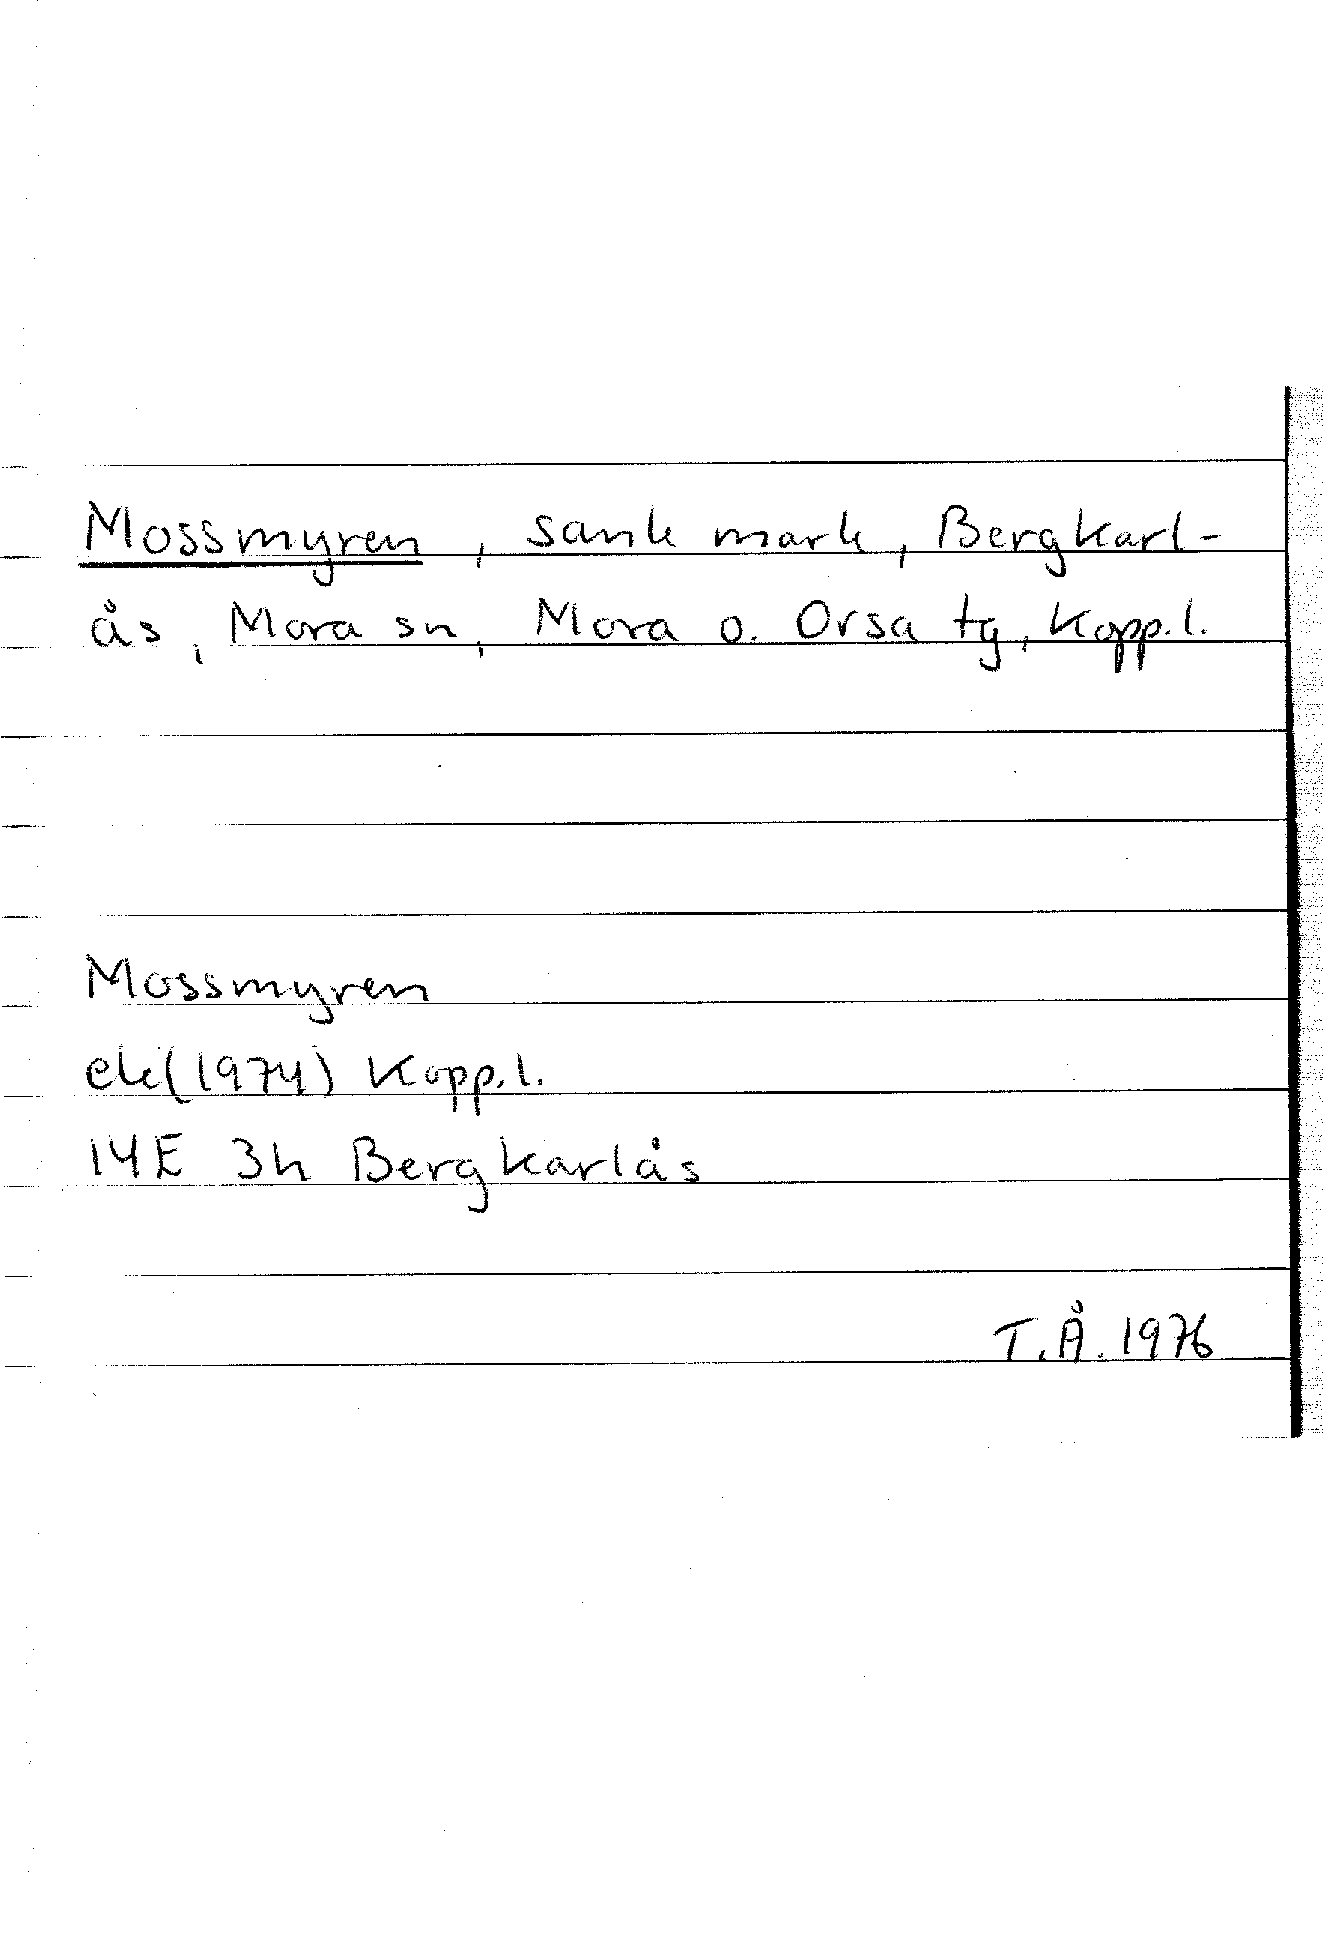 Mossmyren, sank mark, Bergkarl-
ås, Mora sn, Mora o. Orsa tg, Kopp.l.
Mossmyren
ek(1974) Kopp.l.
14E 3h Bergkarlås
T.Å. 1976